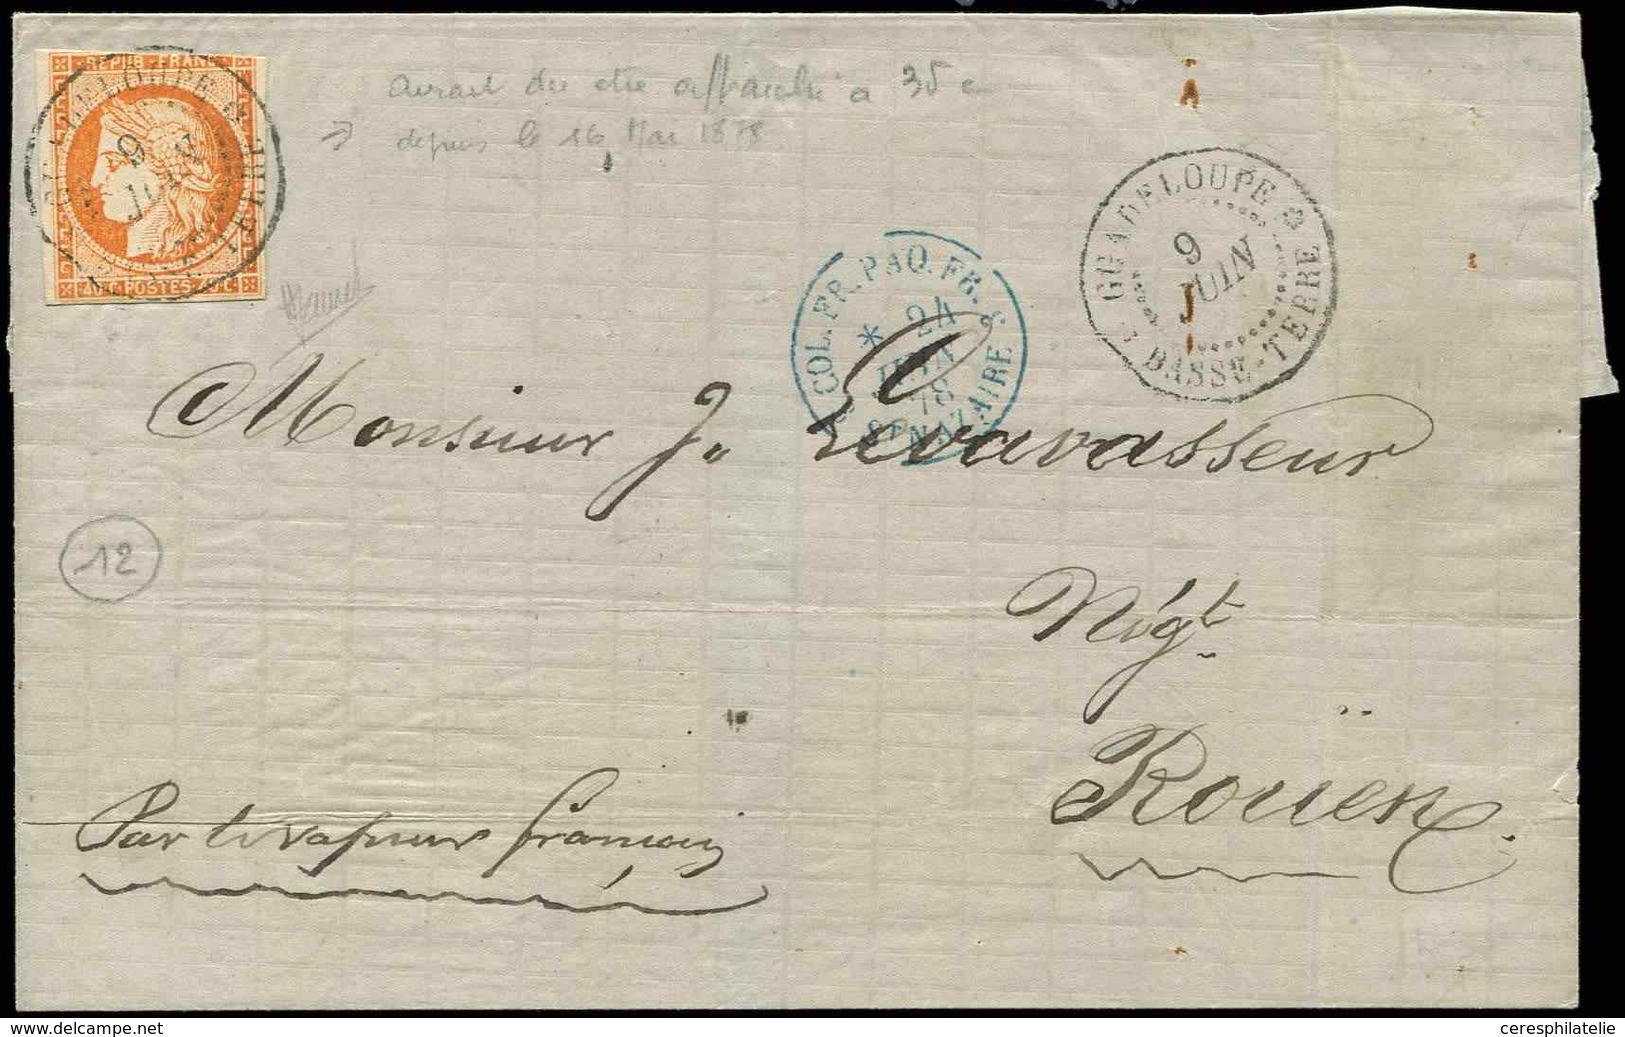 REPUB · FRANC
40 c POSTES 40 c
GUADELOUPE
9
JUIN
BASSE-TERRE
avrait du etre affranchi a 35 c
→ depuis le 16 Mai 1878
A
COL. FR. PAQ. FR. 
* 24
JUIN
78
ST NAZAIRE
GUADELOUPE
9
JUIN
BASSE-TERRE
Monsieur J. Levavasseur
12
Négt
Roüen.
Par le vapeur français
www.delcampe.net
ceresphilatelie